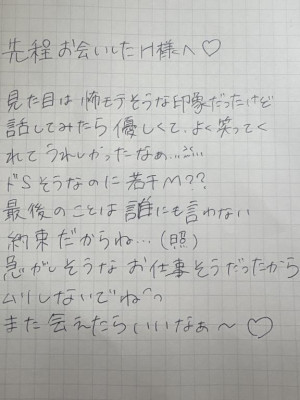 先程お会いしたH様へ♡
見た目は怖モテそうな印象だったけど
話してみたら優しくて、よく笑ってく
れてうれしかったなぁ...
ドSそうなのに若干M??
最後のことは誰にも言わない
約束だからね...(照)
急がしそうなお仕事そうだったから
ムリしないでね^^
また会えたらいいなぁ〜♡